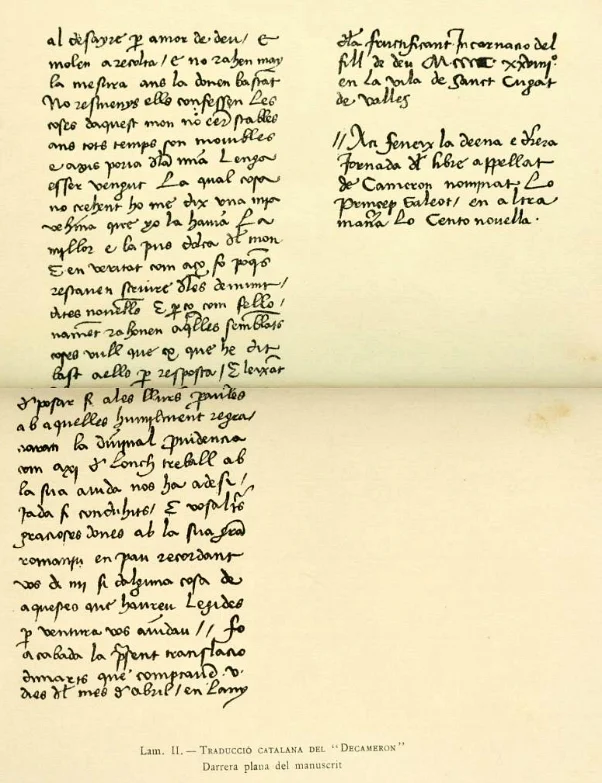 al desayre p amor de deu / E
molen a recolta / e no rahen may
la mesura ans la donen bastat
No resmenys ells confessen Les
coses daquest mon no eēr stables
ans tots temps son mouibles
e axis poria dla mia Lenga
esser vengut La qual cosa
no crehent ho me dix vna mja
vehina que yo la hauia La
millor e la pus dolça dl mon
E en veritat com aço fo poqs
restauen scriure dles demunt /
dites nouelles E pço com fello /
nament rahonen aqlles semblats
coses vull que ço que he dit
bast a ells p resposta / E leixat
d posar fi a les llurs paules
ab aquelles humilment regra /
la diujnal prudencia
com axi d Lonch treball ab
la sua aiuda nos ha a desi /
jada fi conduhits / E vosaltrs
gracioses dones ab la sua gra
romaniu en pau recordant
vos de mi si alguna cosa de
aqueses que haureu Legides
p ventura vos aiudau // fo
acabada la psent translacio
dimarts que comptaud .v.
dies dl mes d abril / en Lany
dla fructificant Incarnacio del
fill de deu MCCCC xxviiij.
en la vila de Sanct Cugat
de valles
// Aci feneix la deena e drera
Jornada dl libre appellat
de Cameron nominat Lo
Princep Galeot / en altra
manā Lo Cento novella .
Lam. II. — Traducció catalana del "Decameron"
Darrera plana del manuscrit